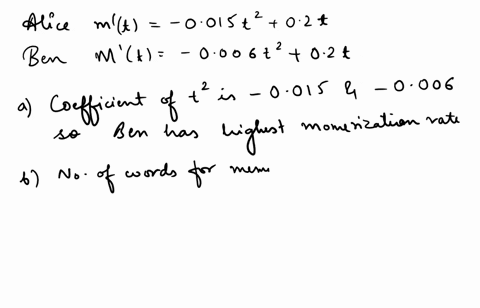 Alice m'(t) = -0.015t² + 0.2t
Ben M'(t) = -0.006t² + 0.2t
a) Coefficient of t² is -0.015 & -0.006
so Ben has highest momerization rate
b) No. of words for mem